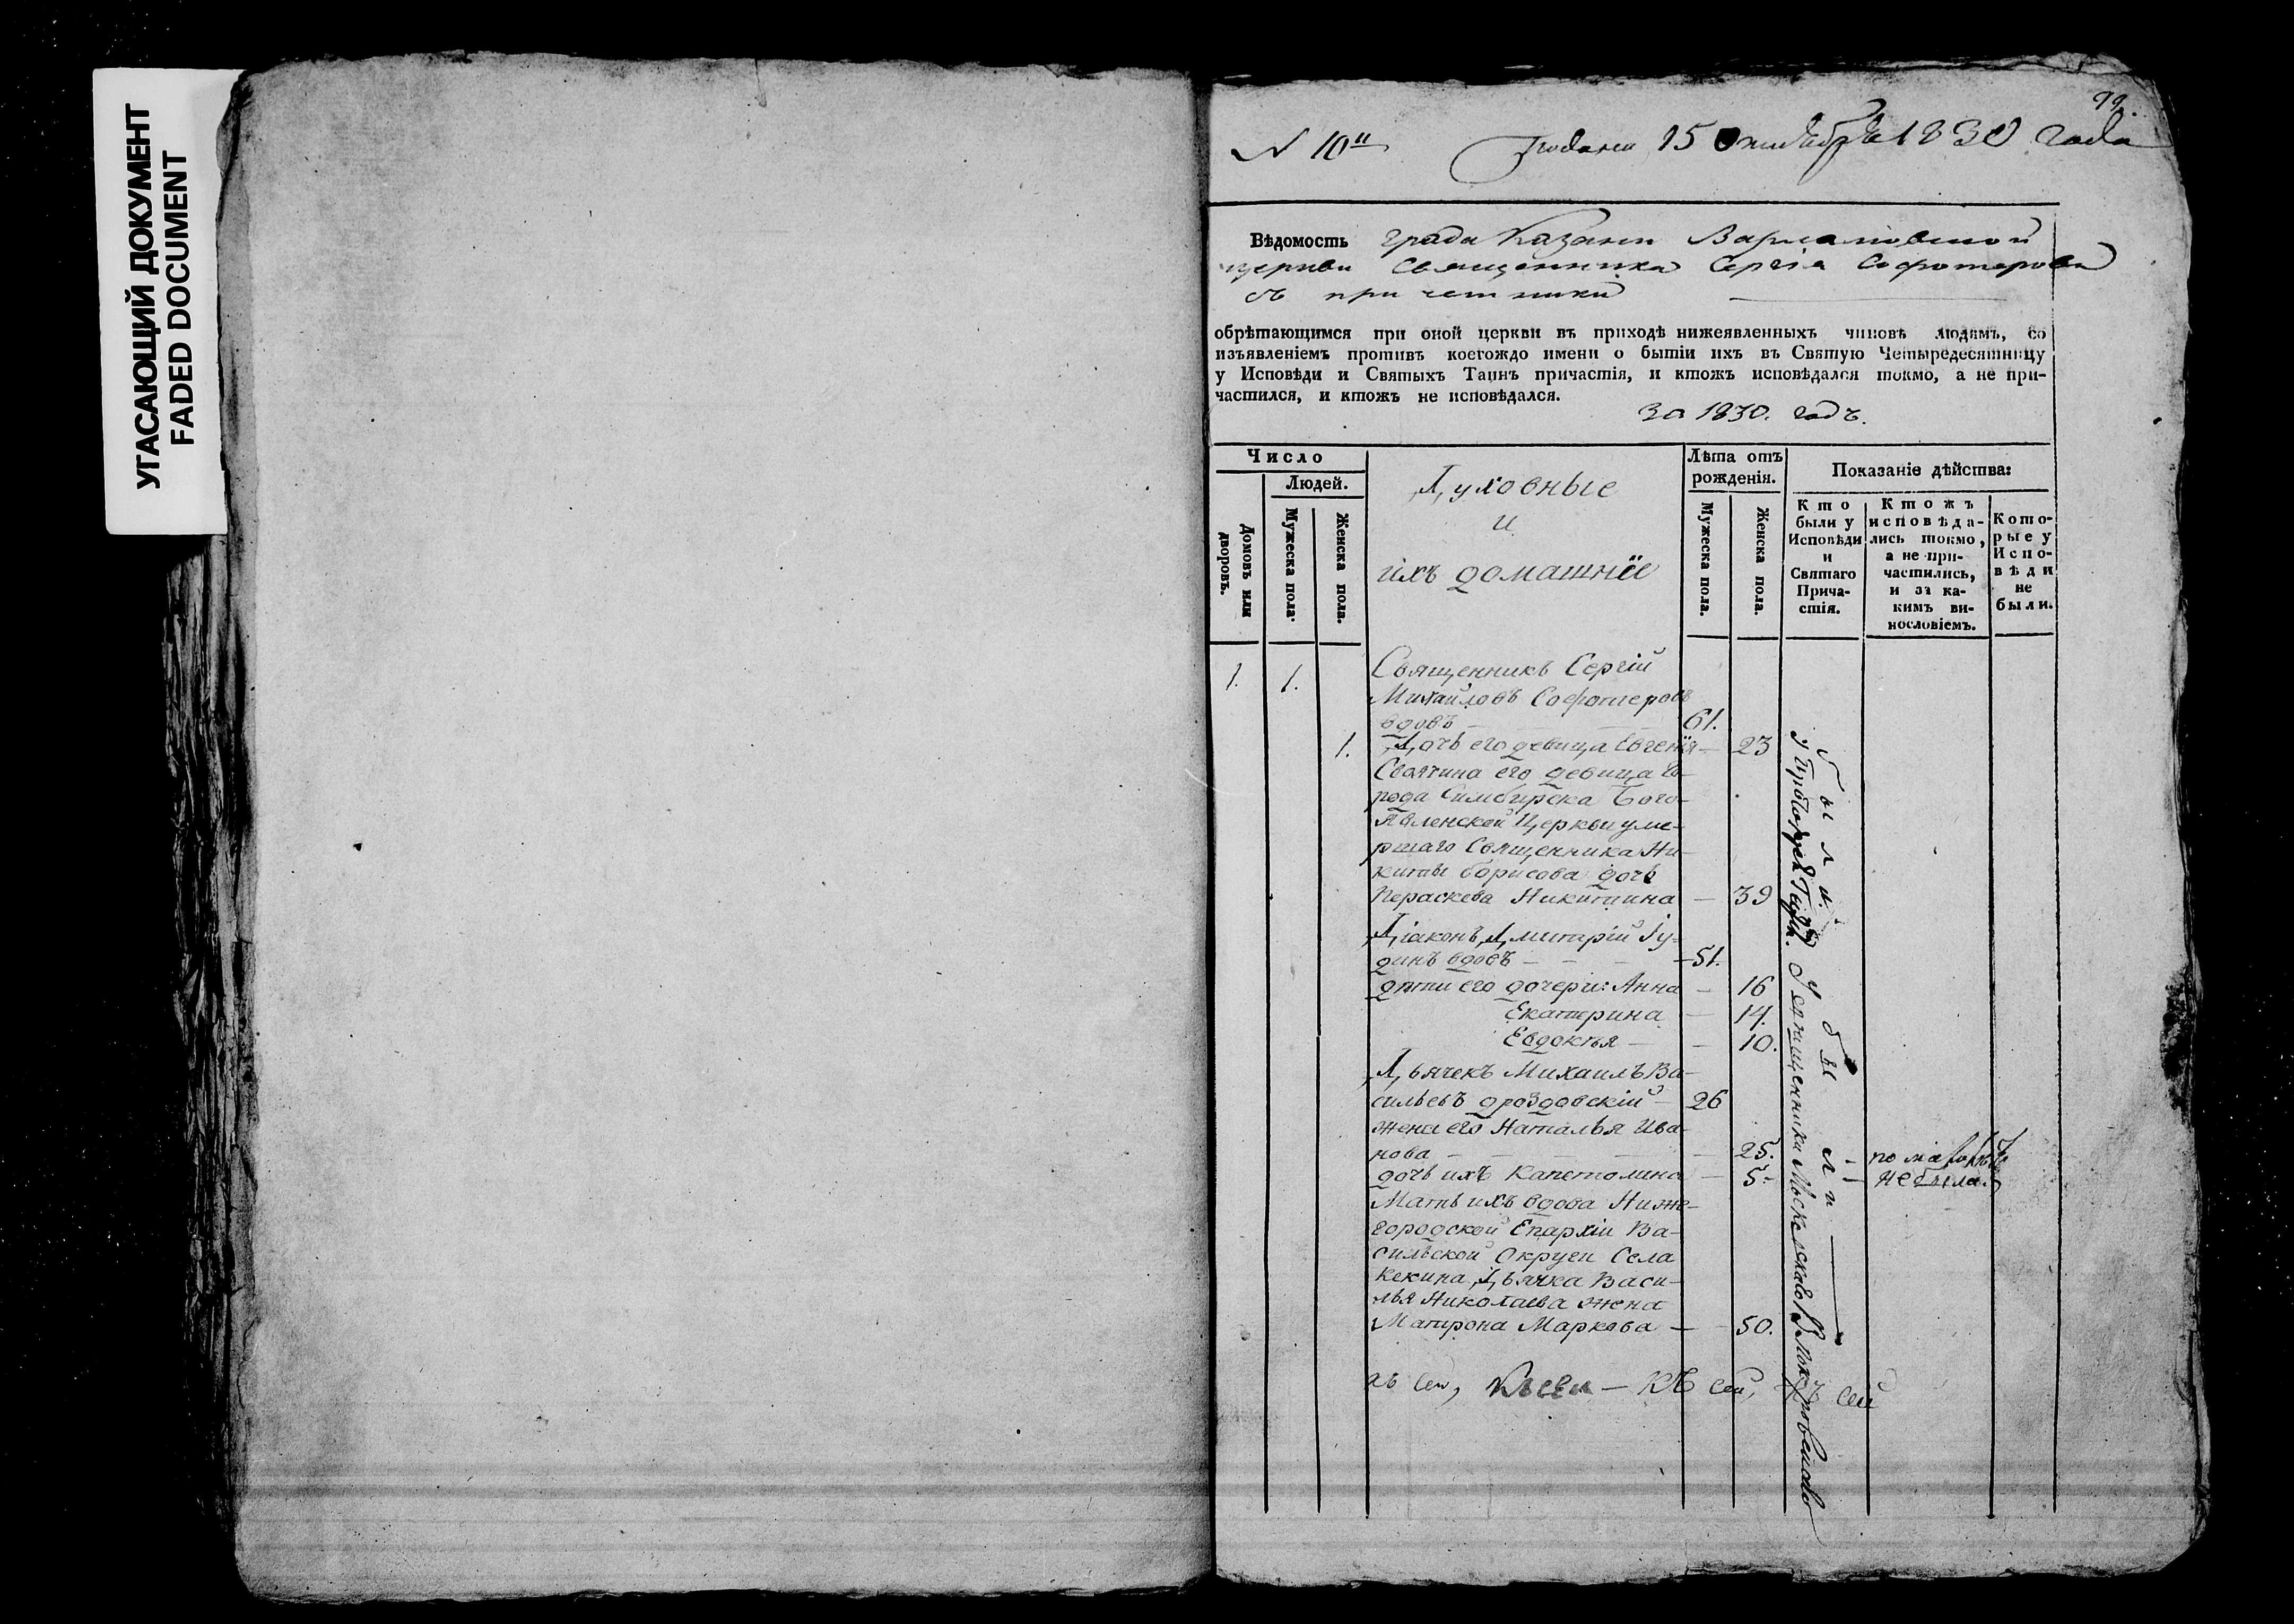 УГАСАЮЩИЙ ДОКУМЕНТ
FADED DOCUMENT
99.
N 10й Подана 15 октября 1830 года
Вѣдомость града Казани Варламовской
церкви Священника Сергія Софотерова
съ причетники
обрѣтающимся при оной церкви въ приходѣ нижеявленныхъ чиновъ людямъ, со
изъявленіемъ противъ коегождо имени о бытіи ихъ въ Святую Четыредесятницу
у Исповѣди и Святыхъ Таинъ причастія, и ктожъ исповѣдался токмо, а не при-
частился, и ктожъ не исповѣдался.
За 1830. годъ.
Число
Людей.
Домовъ или дворовъ.
Мужеска пола.
Женска пола.
Духовные
и
ихъ домашнїе
Лѣта отъ
рожденія.
Мужеска пола.
Женска пола.
Показаніе дѣйства:
Кто
были у
Исповѣди
и
Святаго
Прича-
стія.
Ктожъ
исповѣда-
лись токмо,
а не при-
частились,
и за ка-
кимъ ви-
нословіемъ.
Кото-
рые у
Испо-
вѣди
не
были.
1. 1. Священникъ Сергій
Михайловъ Софотеровъ
вдовъ 61.
1. Дочь его девица Евгенїя — 23
Своячина его девица го-
рода Симбирска Бого-
явленской Церкви уме-
ршаго Священника Ни-
киты Борисова дочь
Пераскева Никитина — 39
Діаконъ Дмитрій Іу-
динъ вдовъ — 51.
дѣти его дочери: Анна — 16
Екатерина — 14.
Евдокѣя — 10.
Дьячекъ Михаилъ Ва-
сильевъ Дроздовскій — 26
жена его Наталья Ива-
нова — 25.
дочь ихъ Капетолина — 5 —
по ма
не была.
Мать ихъ вдова Ниже-
городской Епархіи Ва-
сильской Округи Села
Кекина Дьячка Васи-
лья Николаева жена
Матрона Маркова — 50.
Были:
были
къ сей, къ сей — къ сей, сей